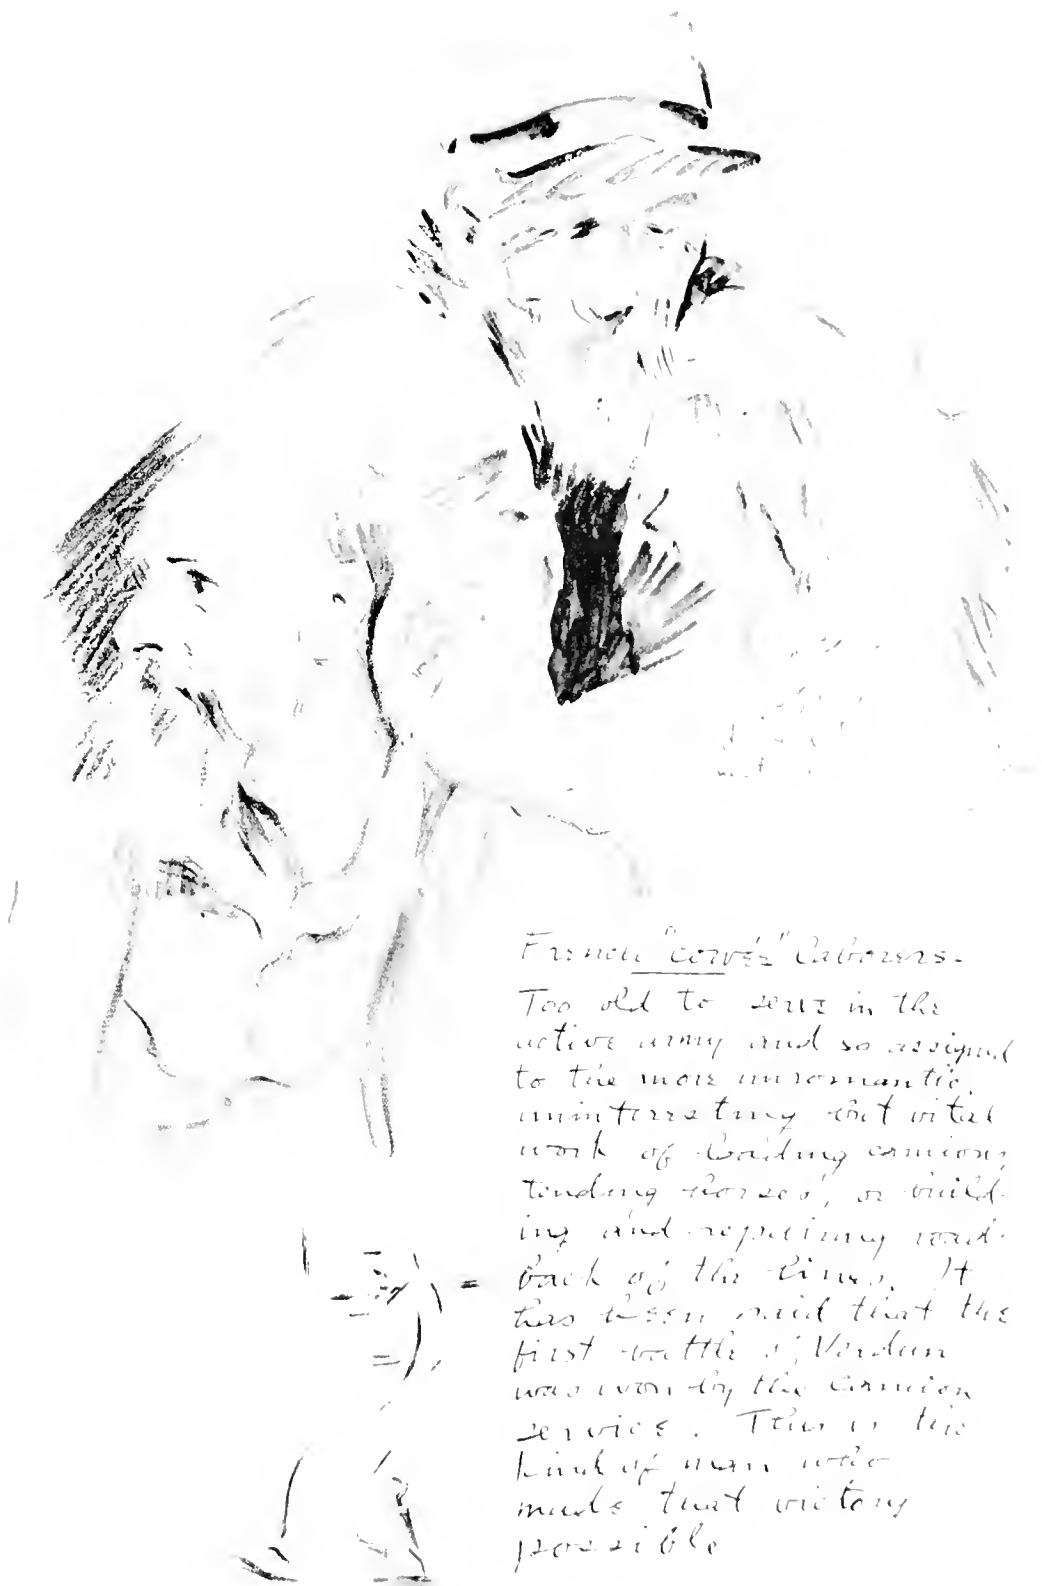 French "corvée" laborers.
Too old to serve in the
active army and so assigned
to the more unromantic,
uninteresting but vital
work of loading camions,
tending horses, or build-
ing and repairing roads
back of the lines. It
has been said that the
first battle of Verdun
was won by the camion
service. This is the
kind of man who
made that victory
possible